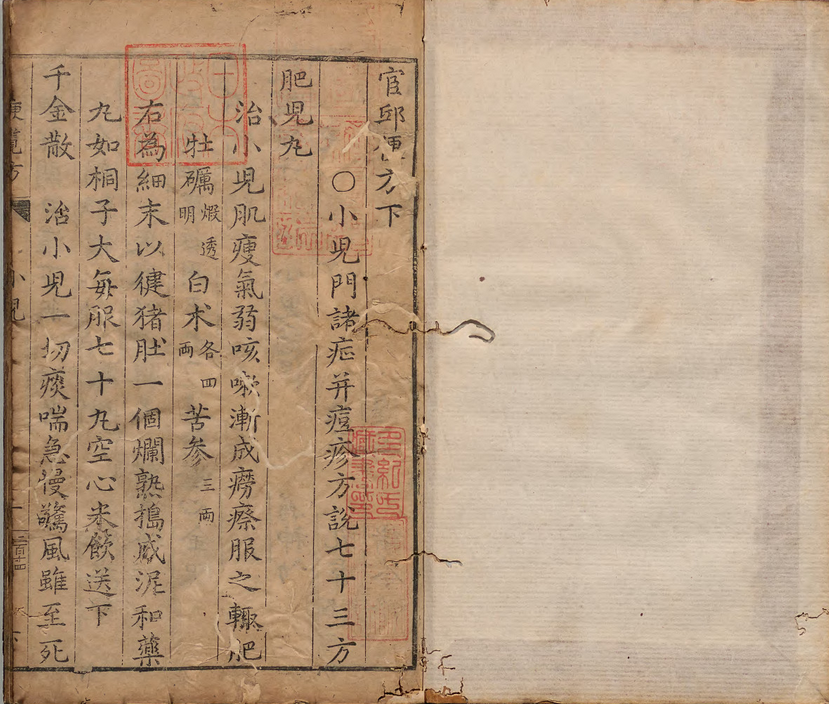 官邸便方下
○小児門諸症并痘疹方說七十三方
肥児丸
治小児肌瘦氣弱咳嗽漸成癆瘵服之輙肥
牡礪煅透明白术各四両苦参三両
右為細末以健猪肚一個爛熟搗成泥和藥
丸如桐子大每服七十丸空心米飲送下
千金散 治小児一切痰喘急慢驚風雖至死
小児